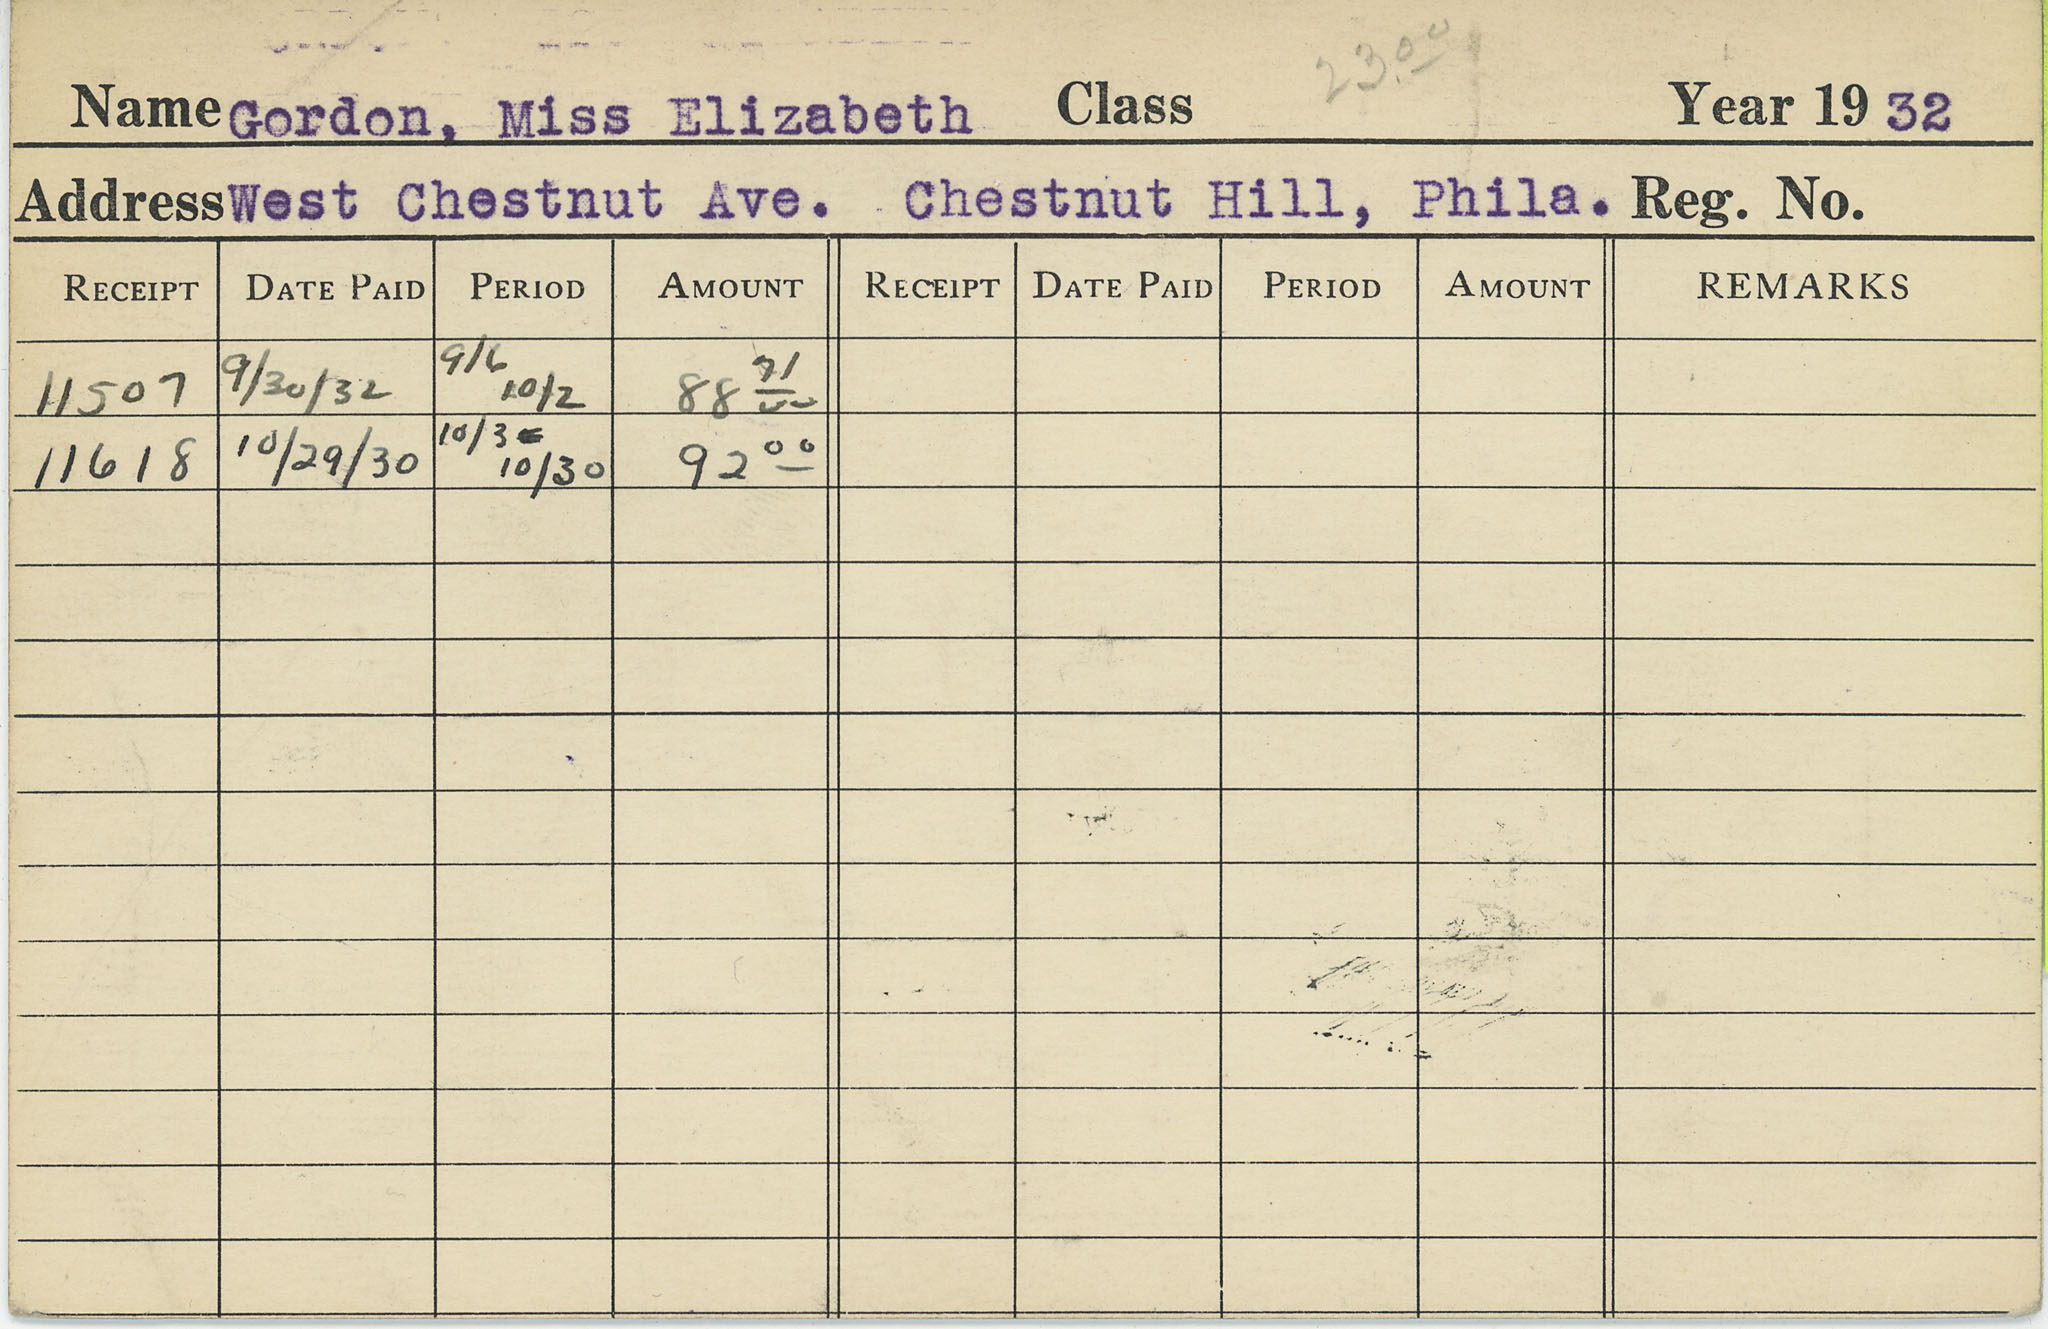 23.00
Name Gordon, Miss Elizabeth Class Year 19 32
Address West Chestnut Ave. Chestnut Hill, Phila. Reg. No.
RECEIPT DATE PAID PERIOD AMOUNT RECEIPT DATE PAID PERIOD AMOUNT REMARKS
11507 9/30/32 9/6 10/2 88 71
11618 10/29/30 10/3 10/30 92 00